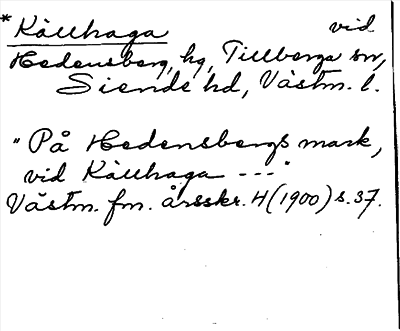 *Källhaga vid
Hedensberg, hg, Tillberga sn,
Siende hd, Västm. l.
"På Hedensbergs mark,
vid Källhaga ---"
Västm. fm. årsskr. 4 (1900) s. 37.